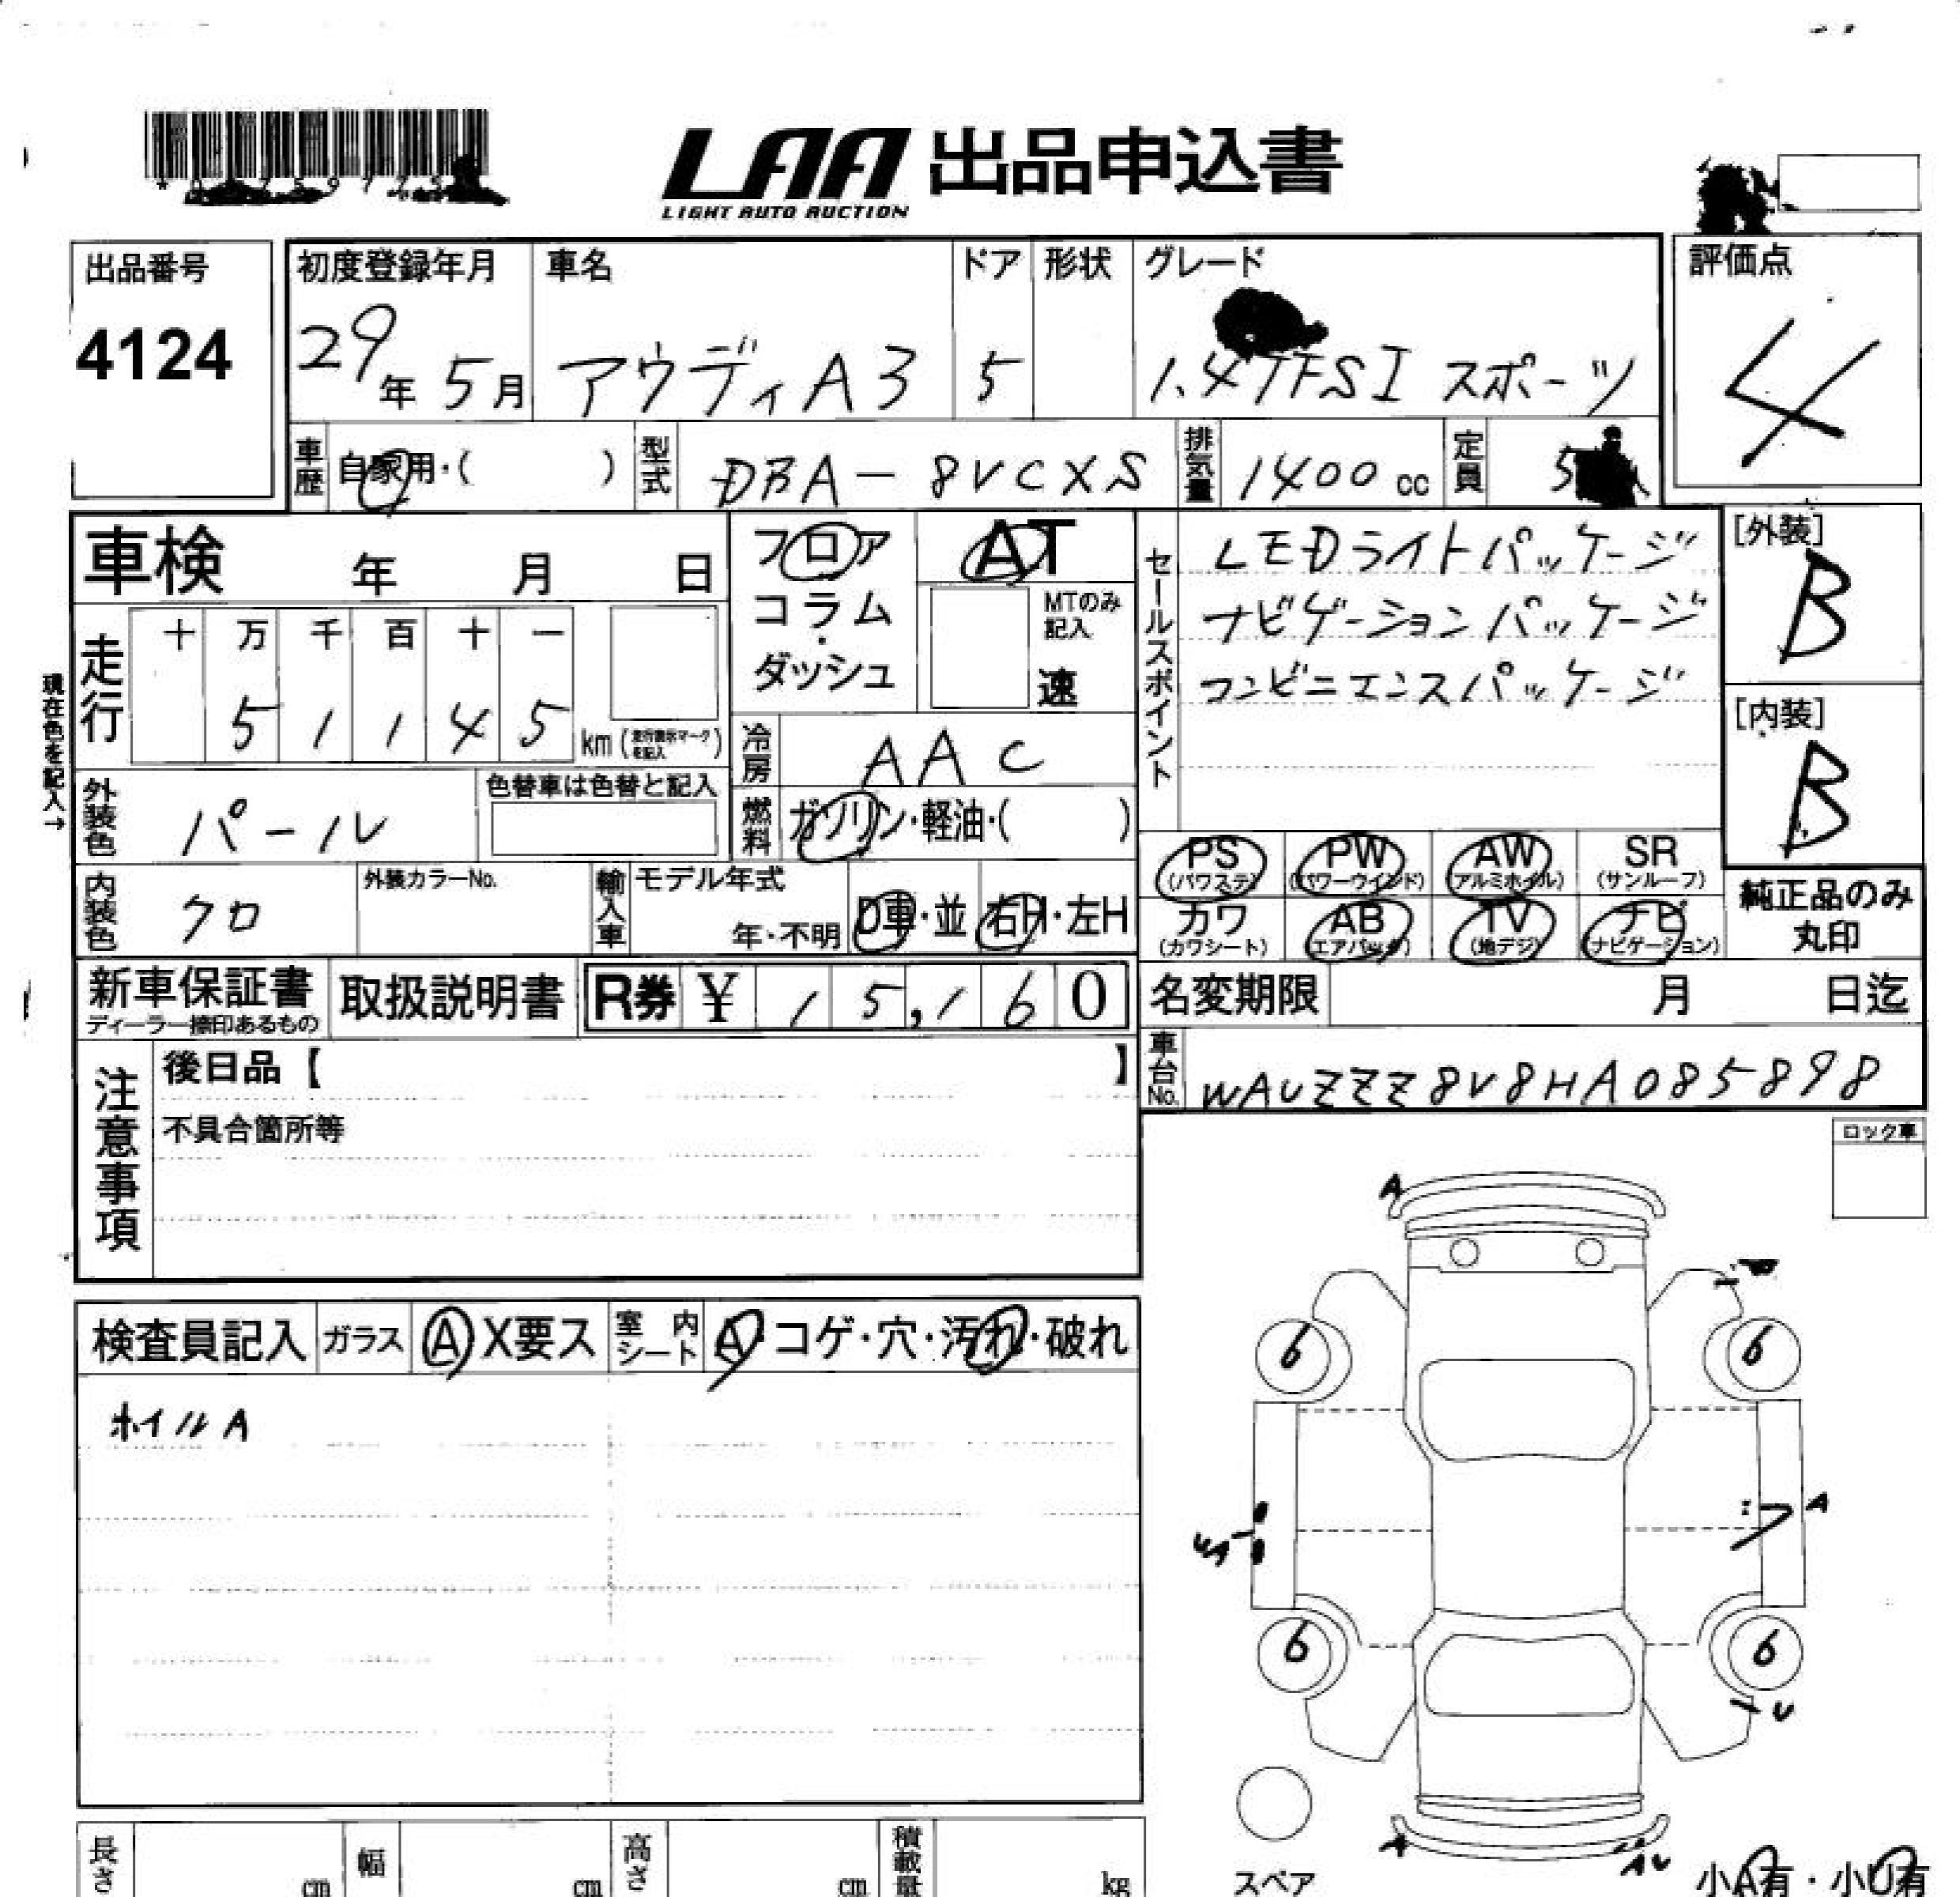 LAA 出品申込書
LIGHT AUTO AUCTION
出品番号
4124
初度登録年月
29年 5月
車名
アウディ A3
ドア
5
形状
グレード
1.4TFSI スポーツ
評価点
4
車歴 自家用・( )
型式 DBA-8VCXS
排気量 1400 cc
定員 5
車検 年 月 日
フロア
コラム
・
ダッシュ
AT
MTのみ記入
速
セールスポイント
LEDライトパッケージ
ナビゲーションパッケージ
コンビニエンスパッケージ
[外装]
B
[内装]
B
現在色を記入→
走行
十 万 千 百 十 一
5 1 1 4 5 km (走行表示マークを記入)
冷房 AAC
外装色 パール
色替車は色替と記入
燃料 ガソリン・軽油・( )
内装色 クロ
外装カラーNo.
輸入車
モデル年式
年・不明
D車・並
右H・左H
PS (パワステ)
PW (パワーウインド)
AW (アルミホイル)
SR (サンルーフ)
カワ (カワシート)
AB (エアバック)
TV (地デジ)
ナビ (ナビゲーション)
純正品のみ丸印
新車保証書
ディーラー捺印あるもの
取扱説明書
R券 ¥ 15,160
名変期限 月 日迄
車台No. WAUZZZ8V8HA085898
注意事項
後日品【 】
不具合箇所等
ロック車
検査員記入
ガラス A X要ス
室内シート A・コゲ・穴・汚れ・破れ
ホイルA
A
6 6
A
UA
6 6
U
A
AU
スペア
小A有・小U有
長さ cm
幅 cm
高さ cm
積載量 kg